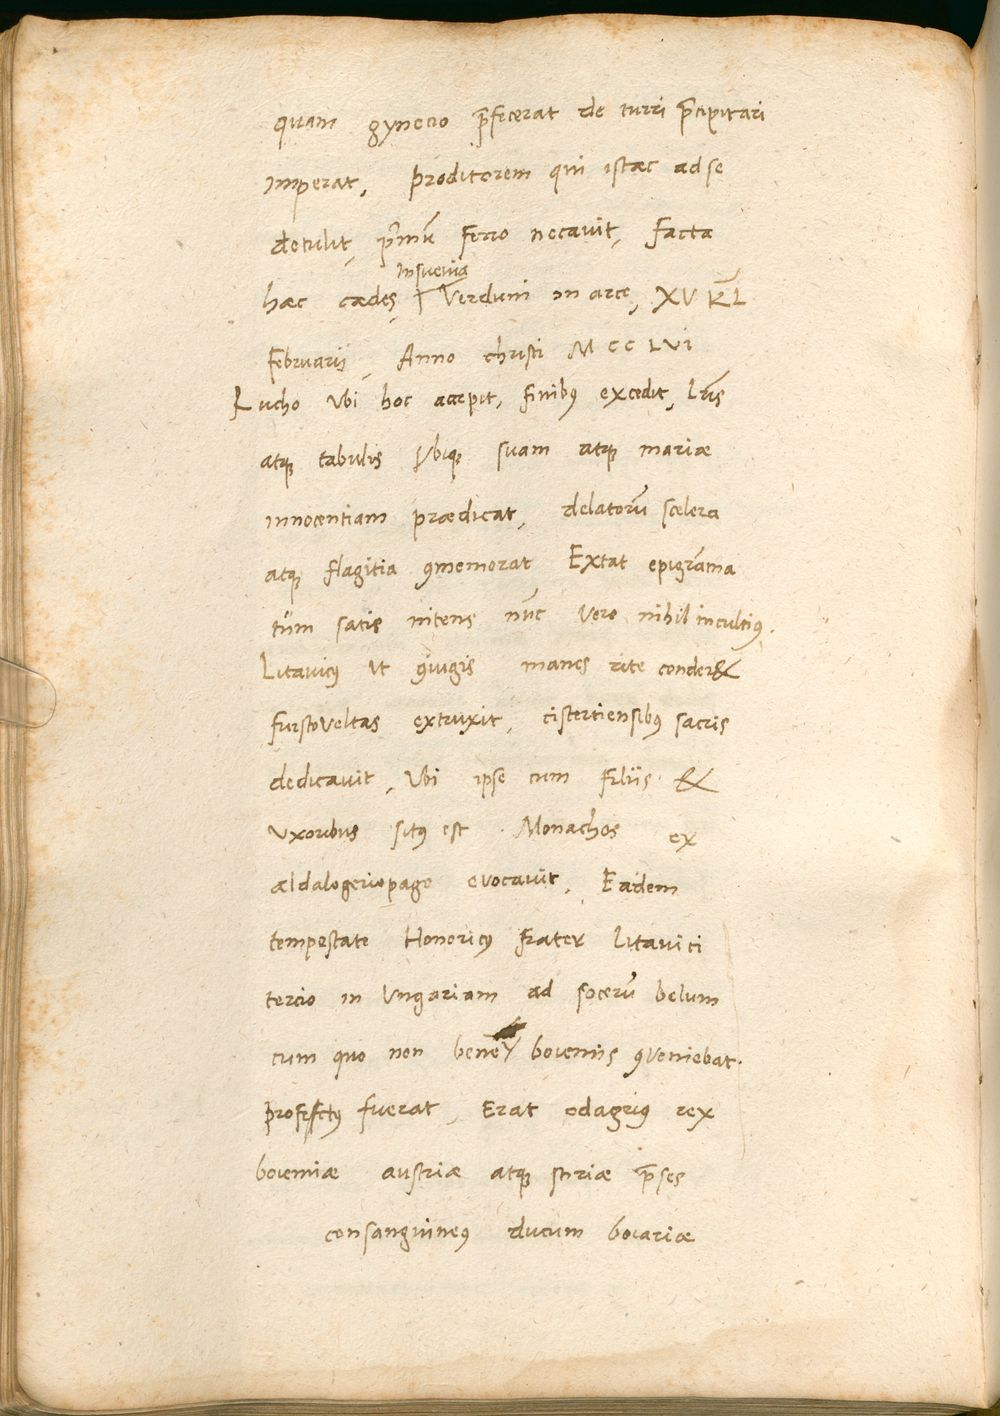 quam gynecio p̄fecerat de turri p̄cipitari
imperat, proditorem qui istæc ad se
detulit, p̄imū ferro necavit, facta
hæc cædes, in suevia Verduni in arce, XV KL̄
Februarii, Anno christi M C C LVI
Lucho Vbi hoc accepit, finibꝰ excedit, lr̄is
atqꝫ tabulis Vbiqꝫ suam atqꝫ mariæ
innocentiam prædicat, delatorū scelera
atqꝫ flagitia ꝯmemorat Extat epigrāma
tūm satis nitens nūc vero nihil incultiꝰ.
Litavicꝰ Vt ꝯiugis manes rite conder&
furstoveltas extruxit, cistertiensibꝰ sacris
dedicavit, Vbi ipse cum filiis &
Vxoribus sitꝰ est. Monachos ex
aldalogeriopago evocavit, Eadem
tempestate Honoricꝰ frater litavici
tercio in Vngariam ad socerū belum
cum quo non bene boiemiis ꝯveniebat.
profectꝰ fuerat, Erat odagriꝰ rex
boiemiæ austriæ atqꝫ stiriæ p̄ses
consanguineꝰ ducum boiariæ